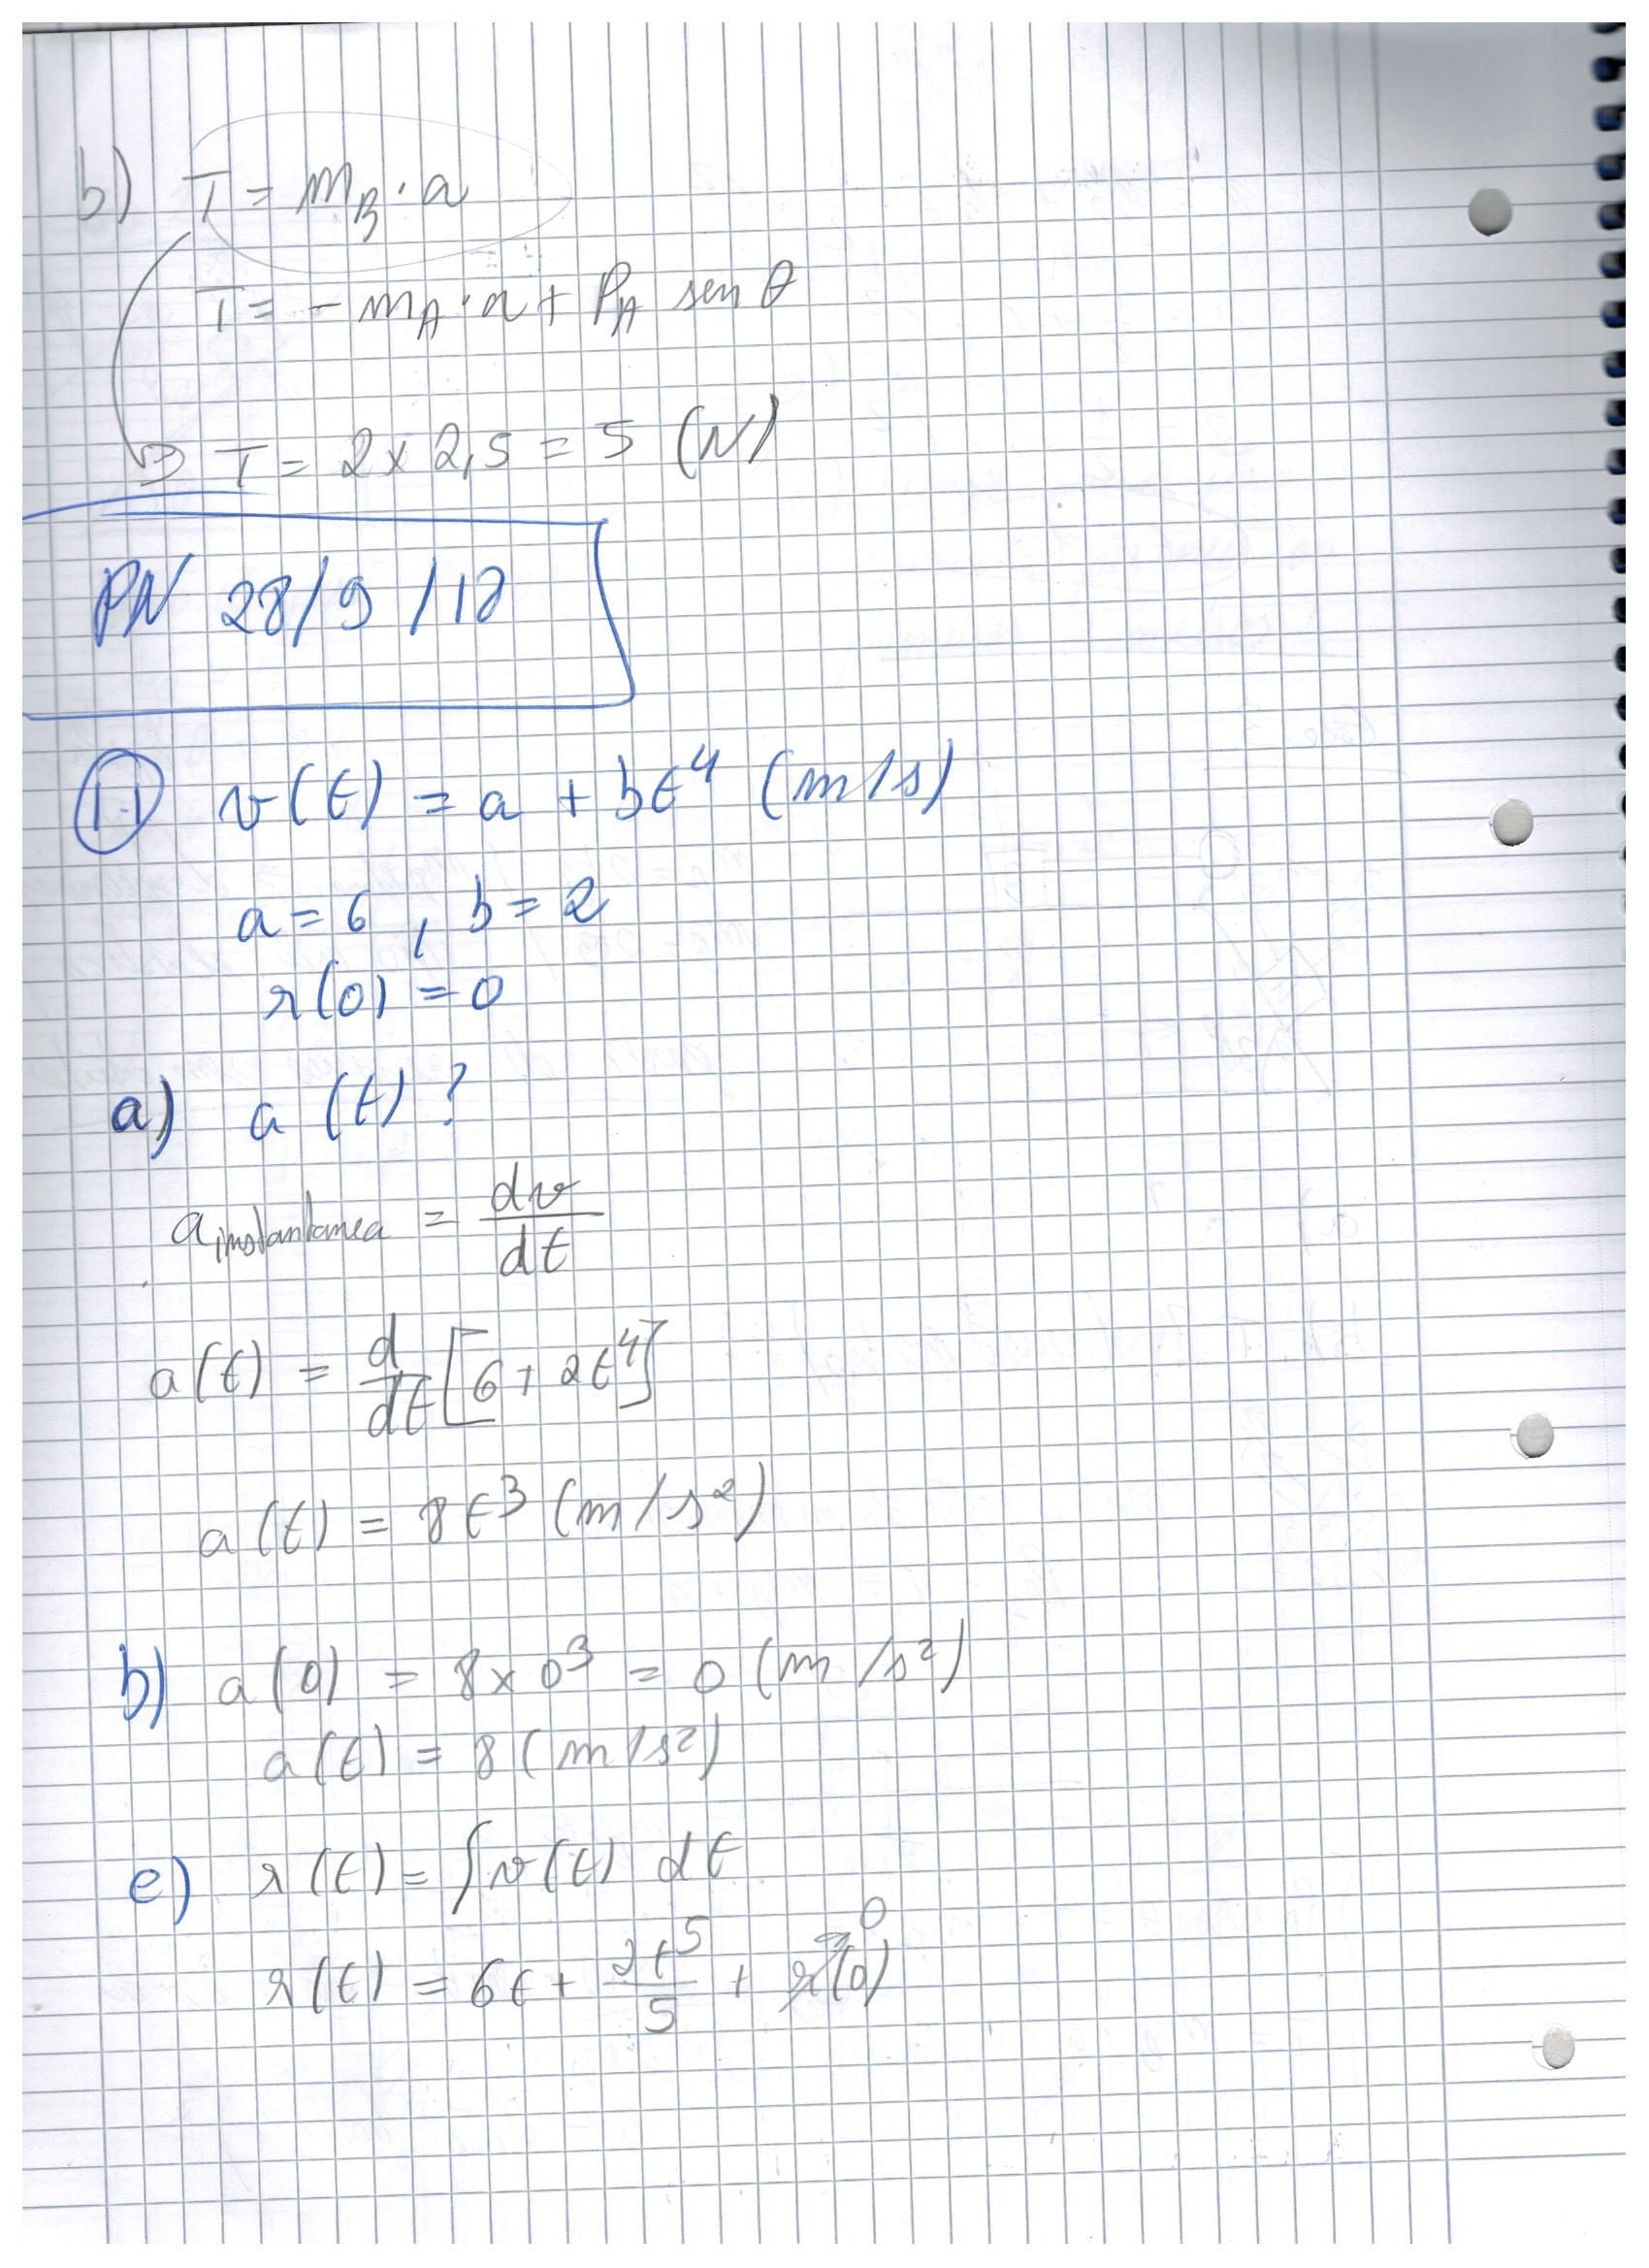 b) T = mB · a
T = - mA · a + PA sen θ
⇒ T = 2 x 2,5 = 5 (N)
PN 28/9/18
1.1 v(t) = a + bt⁴ (m/s)
a = 6 , b = 2
r(0) = 0
a) a(t) ?
a instantanea = dv/dt
a(t) = d/dt [6 + 2t⁴]
a(t) = 8t³ (m/s²)
b) a(0) = 8 x 0³ = 0 (m/s²)
a(t) = 8 (m/s²)
c) r(t) = ∫v(t) dt
r(t) = 6t + 2t⁵/5 + r(0) → 0